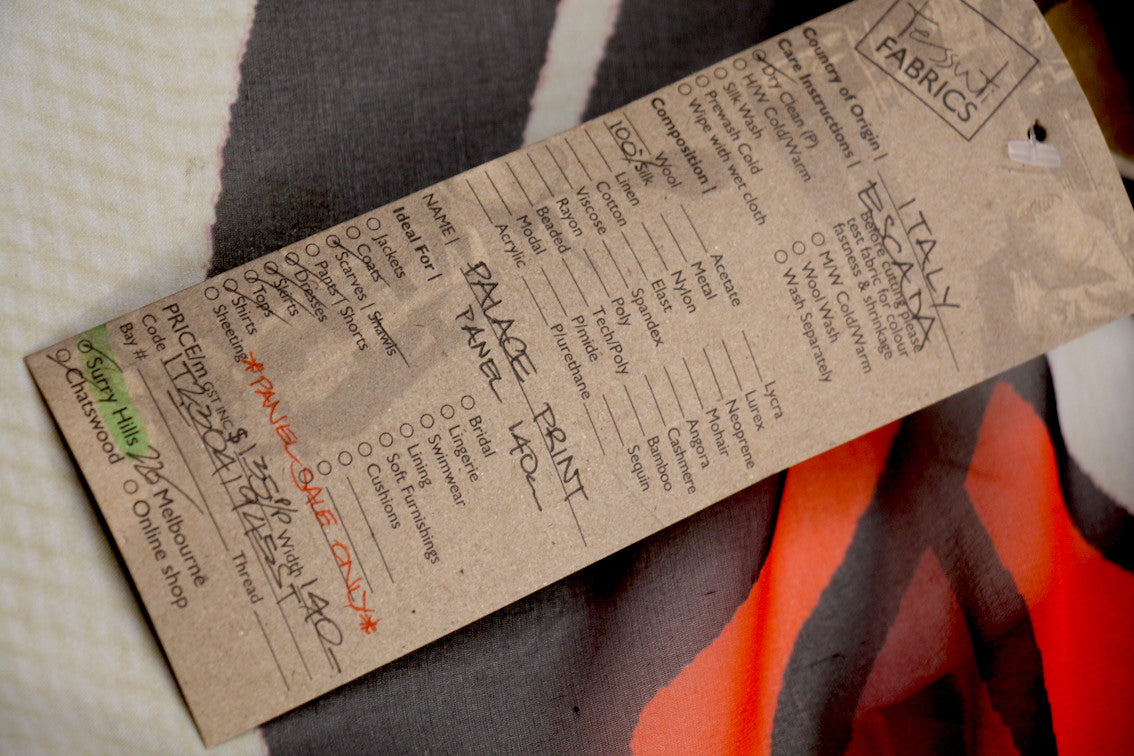 tessuti
FABRICS
Country of Origin | ITALY
Care Instructions | ESCADA
Dry Clean (P)
H/W Cold/Warm
Silk Wash
Prewash Cold
Wipe with wet cloth
Before cutting please
test fabric for colour
fastness & shrinkage
M/W Cold/Warm
Wool Wash
Wash Separately
Composition |
Wool
100% Silk
Linen
Cotton
Viscose
Rayon
Beaded
Modal
Acrylic
Acetate
Metal
Nylon
Elast
Spandex
Poly
Tech/Poly
P/mide
P/urethane
Lycra
Lurex
Neoprene
Mohair
Angora
Cashmere
Bamboo
Sequin
NAME | PALACE PRINT
PANEL 140
Ideal For |
Jackets
Coats
Scarves | Shawls
Pants | Shorts
Dresses
Skirts
Tops
Shirts
Sheeting
Bridal
Lingerie
Swimwear
Lining
Soft Furnishings
Cushions
*PANEL SALE ONLY*
PRICE/m GST INC $ 135 p/p Width 140
Code
Thread
Bay #
Surry Hills
Melbourne
Chatswood
Online shop